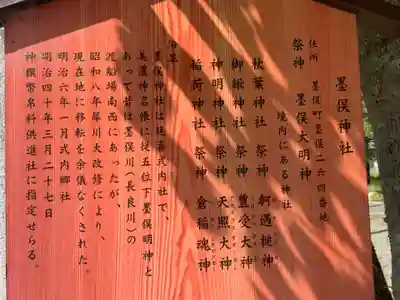 墨俣神社
住所 墨俣町墨俣二六四番地
祭神 墨俣大明神
境内にある神社
秋葉神社 祭神 軻遇槌神
御鍬神社 祭神 豊受大神
神明神社 祭神 天照大神
稲荷神社 祭神 倉稲魂神
沿革
墨俣神社は延喜式内社で、
美濃神名帳に従五位下墨俣明神と
あって昔は墨俣川(長良川)の
渡船場南西にあったが、
昭和八年犀川大改修により、
現在地に移転を余儀なくされた。
明治六年一月式内郷社
明治四十年三月二十七日
神饌幣帛料供進社に指定せらる。